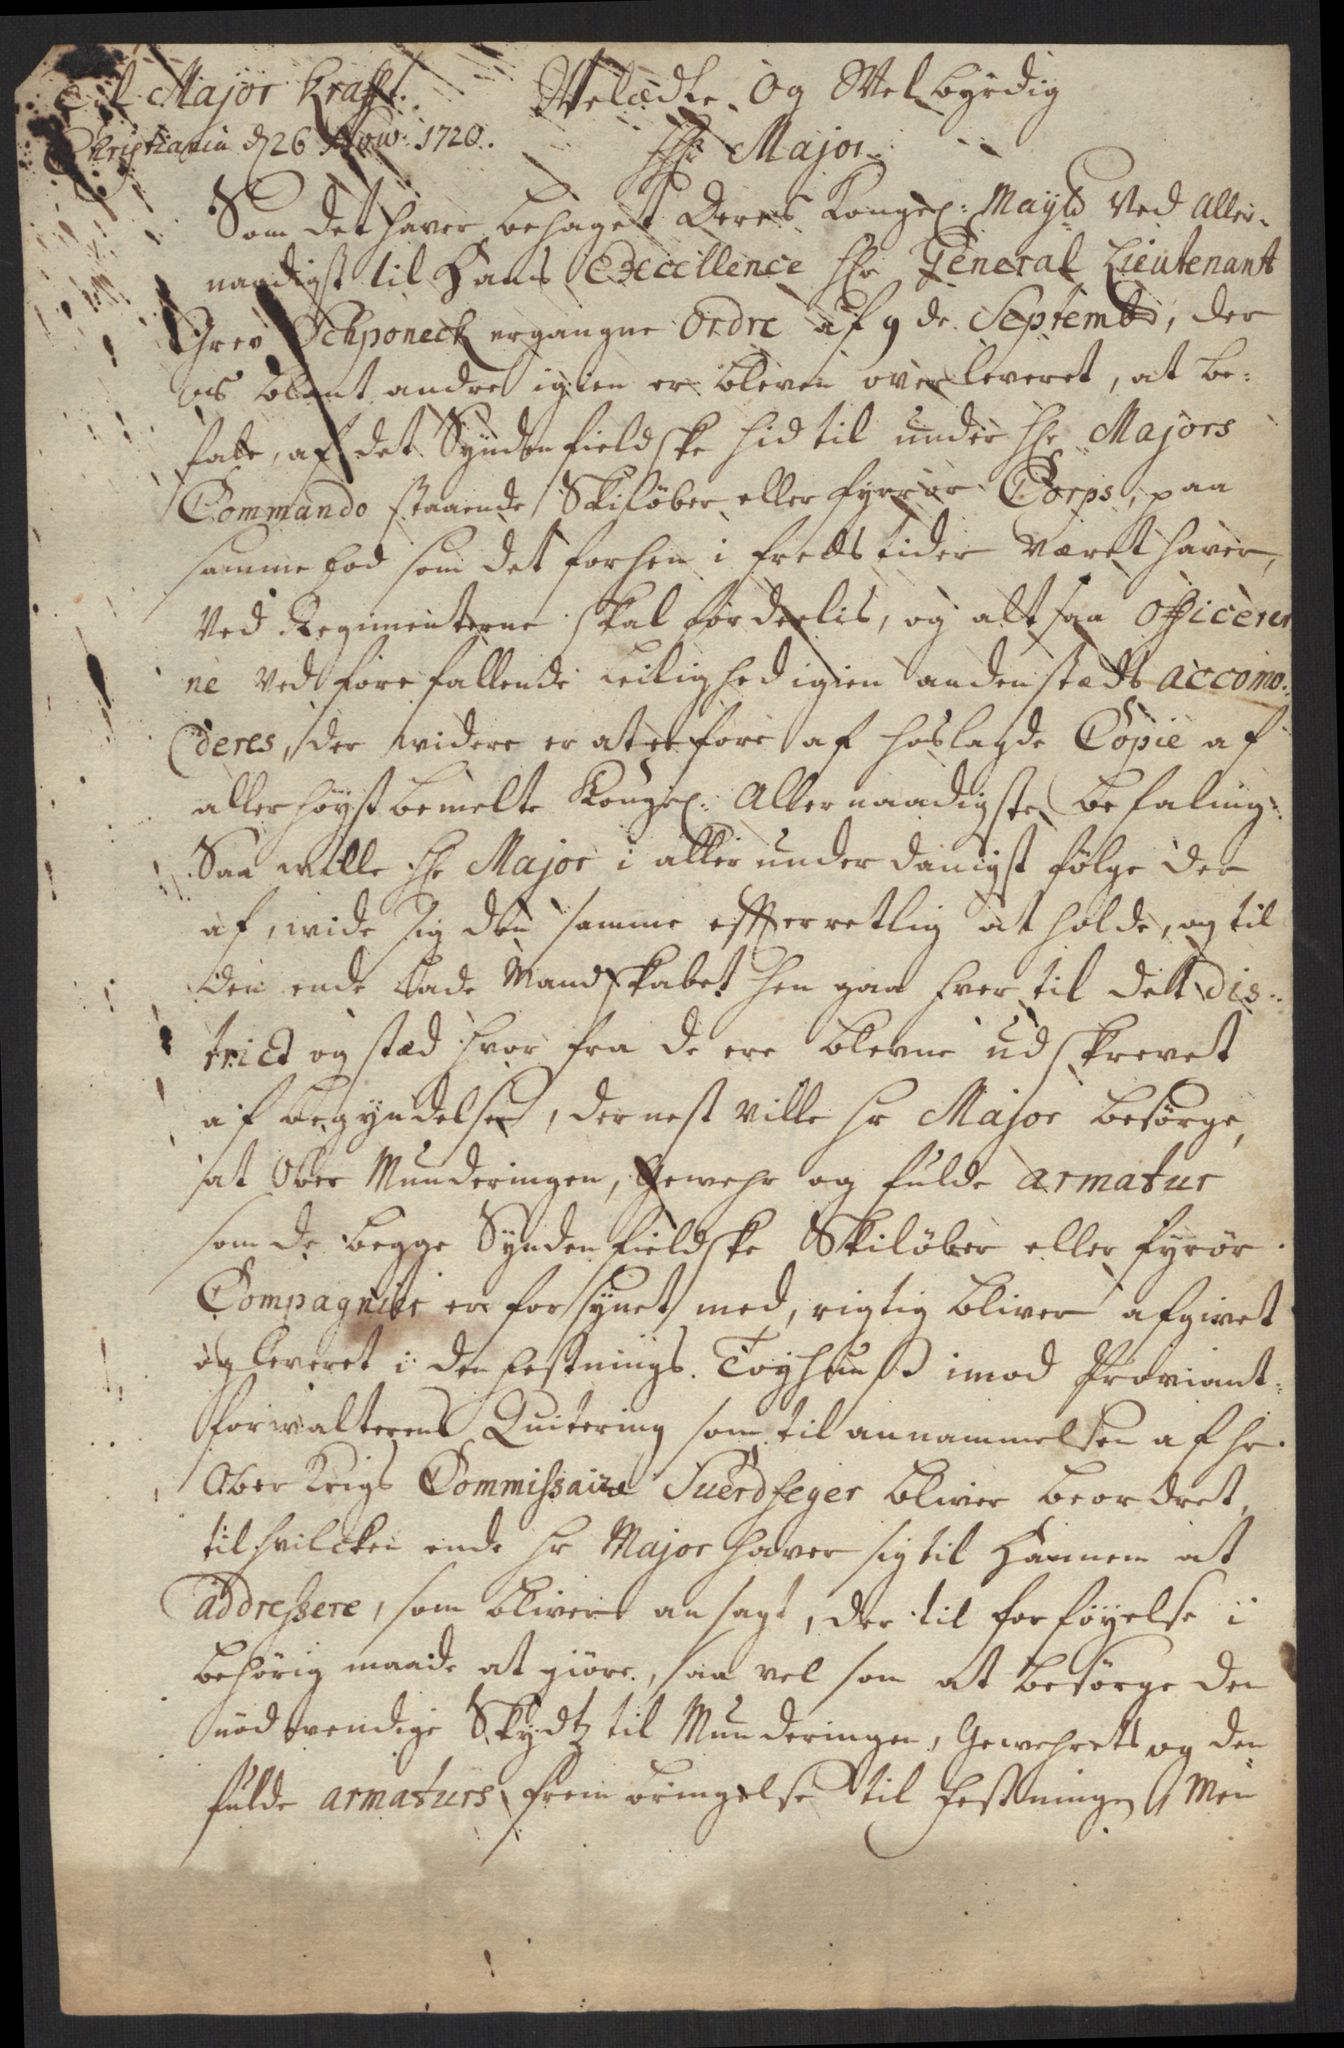 Til Major Krafft.
Christiania d 26 Now: 1720.
Weledle Og Wel byrdig
Hr Major
Som det haver behaget Deres Kongel: Mayts Ved Aller-
naadigst til Hans Excellence Hr General Lieutenant
Grev Schponeck ergangne Ordre af 9 de Septembr, der
os blant andre igien er bleven overleveret, at be-
fale, af det Syndenfieldske hid til under Hr Majors
Commando staaende Skiløber eller fyrrør Corps, paa
samme fod som det forhen i freds tider været haver,
Ved Regimenterne skal fordeelis, og alt saa Officerer
ne Ved fore fallende Leilighed igien andenstæds accomo-
deres, der widere er at er fare af hoslagde Copie af
aller høyst bemelte Kongel: Aller naadigste befaling.
Saa wille Hr Major i aller under danigst følge der
af, wide sig den samme effterretlig at holde, og til
den ende Lade Mandskabet hen gaa hver til det dis-
trict og stæd hvor fra de ere blevne udskrevet
af begyndelsen, der nest ville Hr Major besørge,
at Ober Munderingen, Gewehr og fulde armatur
som de begge Syndenfieldske Skiløber eller fyrør
Compagnier er forsynet med, rigtig bliver afgivet
og leveret i den festnings Tøyhuuse imod Proviant-
forwalterens Quitering som til annammelsen af Hr.
Ober Krigs Commissaire Suerdfeger bliver beordret,
til hvilcken ende Hr Major haver sig til Hannem at
addressere, som bliver an sagt, der til forføyelse i
behørig maade at giøre, saa vel som at besørge den
nødwendige Skydtz til Munderingen, Gewehrets og den
fulde armaturs frem bringelse til festningen, Men